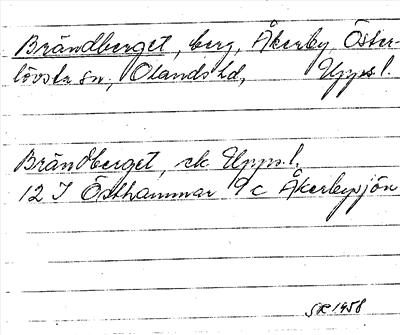 Brändberget, berg, Åkerby, Öster-
lövsta sn, Olands hd, Upps l.
Brändberget, ek Upps. l.
12 I Östhammar 9 c Åkerbysjön
SR 1958